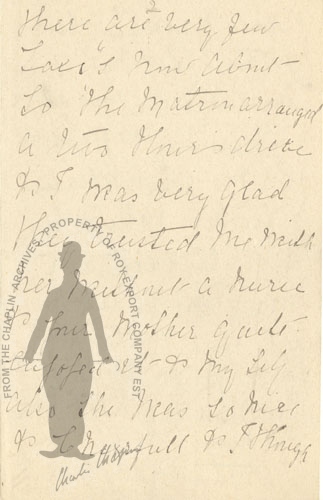 2
There are very few
Taxi's Now About
So The Matron arranged
a two Hours drive
& I was very glad
They Trusted Me With
her Without a nurse
& your Mother quite
enjoyed it & My Self
also She Was So Nice
& Cheerfull & I though
FROM THE CHAPLIN ARCHIVES - PROPERTY OF ROY EXPORT COMPANY EST
Charlie Chaplin